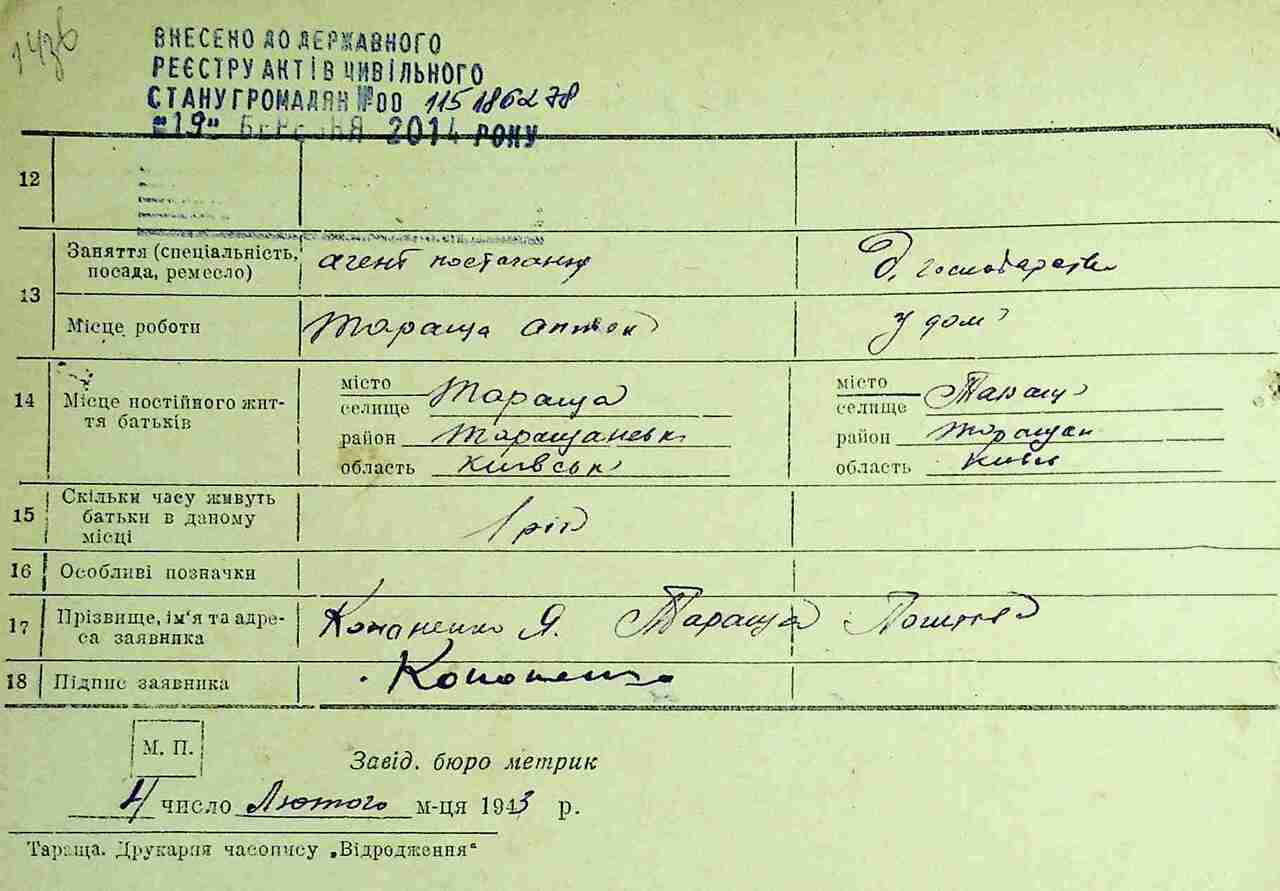 ВНЕСЕНО ДО ДЕРЖАВНОГО
РЕЄСТРУ АКТІВ ЦИВІЛЬНОГО
СТАНУ ГРОМАДЯН №00 115186278
"19" БЕРЕЗНЯ 2014 РОКУ
12
13 Заняття (спеціальність, посада, ремесло) агент постачання Д. господарств
Місце роботи Тараща аптек у дом
14 Місце постійного жит-
тя батьків
місто
селище Тараща
район Таращанськ
область Київськ
місто
селище Таращ
район Таращан
область Київ
15 Скільки часу живуть
батьки в даному
місці
1 рік
16 Особливі позначки
17 Прізвище, ім'я та адре-
са заявника
Кононенко Я. Тараща
18 Підпис заявника Кононенко
М. П.
Завід. бюро метрик
4 число Лютого м-ця 1943 р.
Тараща. Друкарня часопису „Відродження“